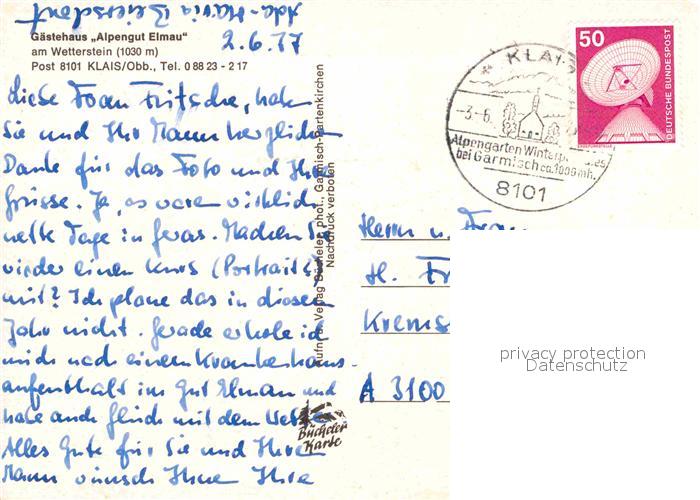 Ada-Maria Beiersdorf
Gästehaus „Alpengut Elmau"
am Wetterstein (1030 m)
Post 8101 KLAIS/Obb., Tel. 0 88 23 - 2 17
2.6.77
Liebe Frau Fritsche, haben
Sie und Ihr Mann herzlichen
Dank für das Foto und Ihre
Grüsse. Ja, es waren wirklich
nette Tage in Geras. Machen Sie
wieder einen Kurs (Portrait?)
mit? Ich plane das in diesem
Jahr nicht. Gerade erhole ich
mich nach einem Krankenhaus-
aufenthalt im Gut Elmau und
habe auch Glück mit dem Wetter
Alles Gute für Sie und Ihren
Mann wünscht Ihnen Ihre
Verlag Bücheler, phot., Garmisch-Partenkirchen
Nachdruck verboten
Bücheler
Karte
50
DEUTSCHE BUNDESPOST
KLAIS
-3.-6.
Alpengarten Winterp
bei Garmisch ca.1000 mh.
8101
Herrn u. Frau
H. Fr
Krems
A 3100
privacy protection
Datenschutz